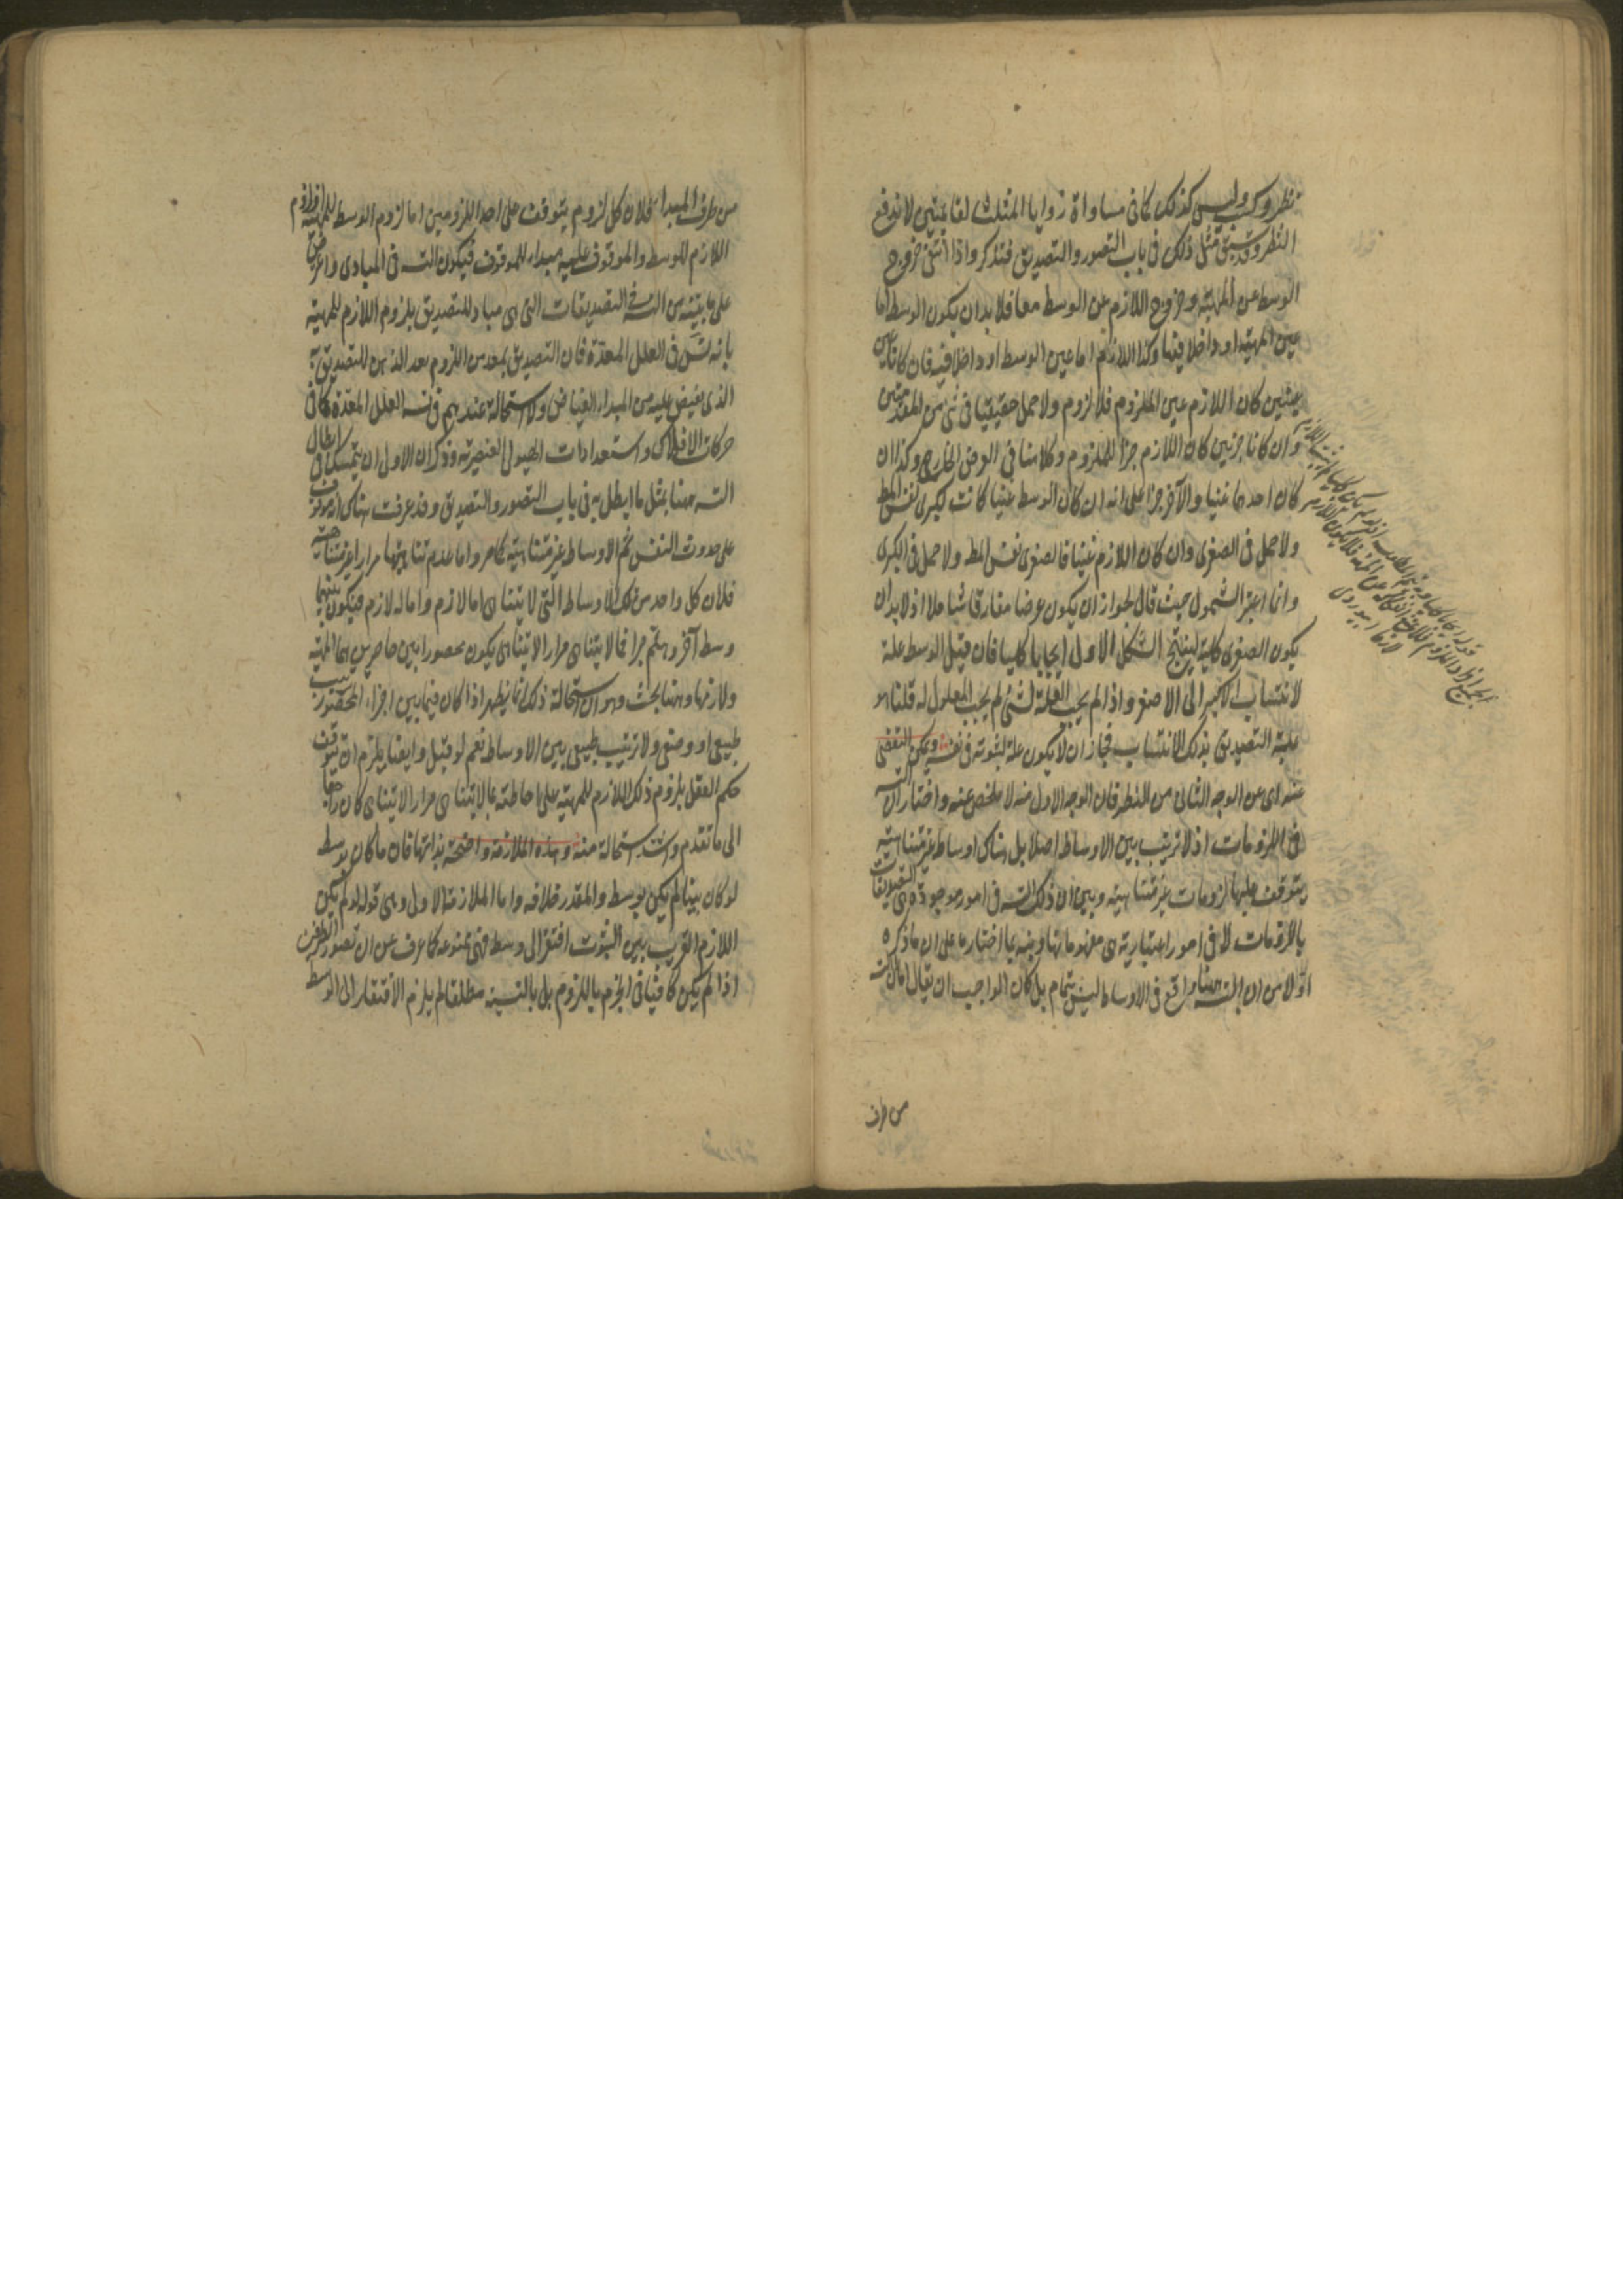 نظر وكسب وليس كذلك كما فى مساواة زوايا المثلث لقائمتين لا ندفع
النظر وقد سبق مثل ذلك فى باب التصور والتصديق فتذكر واذا انتفى خروج
الوسط عن المهية وخروج اللازم عن الوسط معا فلا بد ان يكون الوسط اما
عين المهية او داخلا فيها وكذا اللازم اما عين الوسط او داخلا فيه فان كانا
عينين كان اللازم عين الملزوم فلا لزوم ولا حمل حقيقيا فى شئ من المقدمتين
وان كانا جزئين كان اللازم جزأ للملزوم وكلامنا فى العرض الخارج وكذا ان
كان احدهما عينا والآخر جزأ على انه ان كان الوسط عينا كانت كبرى نفس المط
ولا حمل فى الصغرى وان كان اللازم عينا فالصغرى نفس المط ولا حمل فى الكبرى
وانما اعتبر الشمول حيث قال لجواز ان يكون عرضا مفارقا شاملا اذ لا بد ان
يكون الصغرى كلية لينتج الشكل الاول ايجابا كليا فان قيل الوسط علة
لانتساب الاكبر الى الاصغر واذا لم يجب العلة لشئ لم يجب المعلول له قلنا هو
علية التصديق بذلك الانتساب فجاز ان لا يكون علة لثبوته فى نفسه ويمكن التفصى
عنه اى عن الوجه الثانى من النظر فان الوجه الاول منه لا مخلص عنه واختار ان التسه
فى الملزومات اذ لا ترتيب بين الاوساط اصلا بل هناك اوساط غير متناهية
يتوقف عليها لزومات غير متناهية وبين ان ذلك التسه فى امور موجودة هى التصديقات
باللزومات لا فى امور اعتبارية هى مفهوماتها ونبه بما اختاره على ان ما ذكره
اولا من ان التسه ههنا واقع فى الاوساط ليس بتمام بل كان الواجب ان يقال اما التسه
من طرف
من طرف المبداء فلان كل لزوم يتوقف على احد اللزومين اما لزوم الوسط للمهية او لزوم
اللازم للوسط والموقوف عليه مبداء للموقوف فيكون التسه فى المبادى واعترض
على ما بينه من التسه فى التصديقات التى هى مباد للتصديق بلزوم اللازم للمهية
بانه تس فى العلل المعدة فان التصديق بمعدس اللزوم يعد الذهن للتصديق
الذى يفيض عليه من المبداء الفياض ولا استحالة عندهم فى تسه العلل المعدة كما فى
حركات الافلاك واستعدادات الهيولى العنصرية وذكر ان الاولى ان يتمسك فى ابطال
التسه ههنا بمثل ما ابطل به فى باب التصور والتصديق وقد عرفت هناك انه موقوف
على حدوث النفس ثم الاوساط غير متناهية كما مر واما عدم تناهيها مرارا غير متناهية
فلان كل واحد من تلك الاوساط التى لا يتناهى اما لازم واما له لازم فيكون بينهما
وسط آخر وهلم جرا فما لا يتناهى مرارا لا يتناهى يكون محصورا بين حاصرين هما المهية
ولازمها وههنا بحث وهو ان استحالة ذلك انما يظهر اذا كان فيما بين اجزاء المحصور ترتيب
طبيعى او وضعى ولا ترتيب طبيعى بين الاوساط نعم لو قيل وايضا يلزم ان يتوقف
حكم العقل بلزوم ذلك اللازم للمهية على احاطته بما لا يتناهى مرارا لا يتناهى كان راجعا
الى ما تقدم واشد استحالة منه وهذه الملازمة واضحة بذاتها فان ما كان بوسط
لو كان بينا لم يكن بوسط والمقدر خلافه واما الملازمة الاولى وهى قوله لو لم يكن
اللازم القريب بين الثبوت افتقر الى وسط فهى ممنوعة كما عرف من ان تصور الطرفين
اذا لم يكن كافيا فى الجزم باللزوم بل بالنسبة مطلقا لم يلزم الافتقار الى الوسط